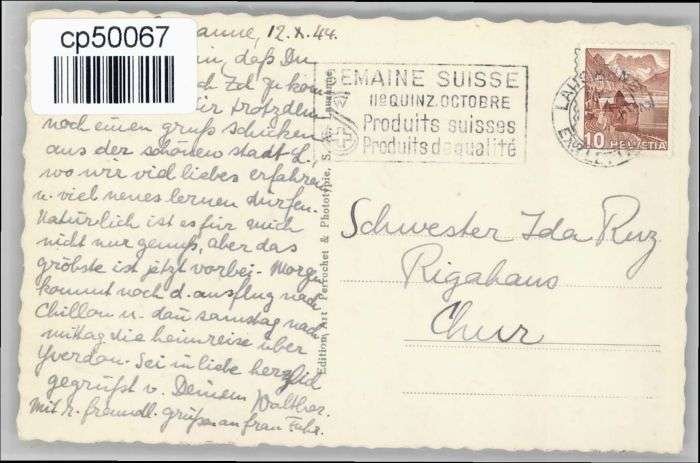 cp50067
anne, 12.X.44.
in, daß Du
ch Zd. zu
ir trotzdem
noch einen gruß schicken
aus der schönen stadt L,
wo wir viel liebes erfahren
u. viel neues lernen durfen.
Natürlich ist es für mich
nicht nur genuss, aber das
gröbste ist jetzt vorbei. Morgen
kommt noch d. ausflug nach
Chillon u. dann samstag nach
mittag die heimreise über
Yverdon. Sei in liebe herzlid
gegrüßt v. Deinem Walther.
Mit r. freundl. grüßen an frau
Edition Art Perrochet & Phototypie, S. A., Lausanne
SEMAINE SUISSE
IIe QUINZ. OCTOBRE
Produits suisses
Produits de qualité
10 HELVETIA
Schwester Ida Ruz
Rigahaus
Chur